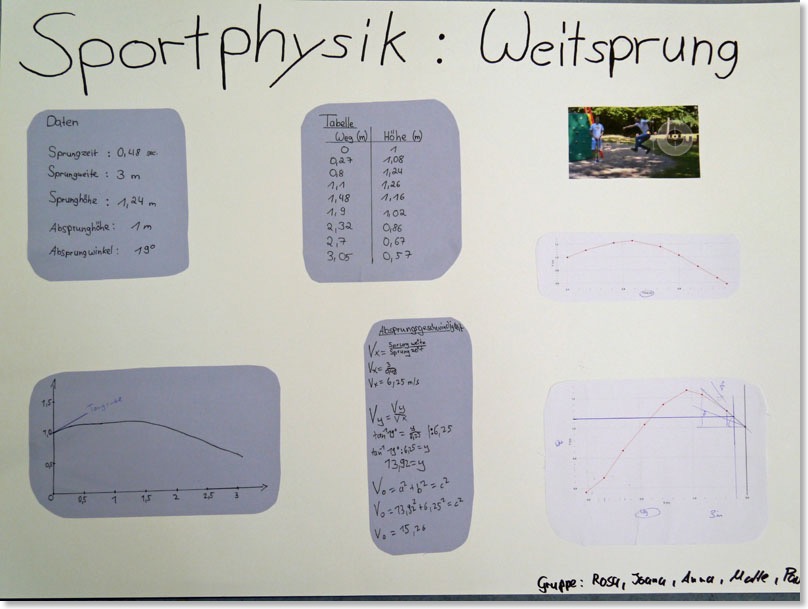 Sportphysik : Weitsprung
Daten
Sprungzeit : 0,48 sec.
Sprungweite : 3 m
Sprunghöhe : 1,24 m
Absprunghöhe : 1 m
Absprungwinkel : 19°
Tabelle
Weg (m) Höhe (m)
0 1
0,27 1,08
0,8 1,24
1,1 1,26
1,48 1,16
1,9 1,02
2,32 0,86
2,7 0,67
3,05 0,57
Absprunggeschwindigkeit
Vx = Sprungweite
Sprungzeit
Vx = 3
Vx = 6,25 m/s
Vy = Vy
Vx
tan⁻¹ 19° = y |: 6,25
6,25
tan⁻¹ 19° : 6,25 = y
13,92 = y
V0 = a² + b² = c²
V0 = 13,92² + 6,25² = c²
V0 = 15,26
Tangente
1,5
1,0
0,5
0 0,5 1 1,5 2 2,5 3
Gruppe: Rosa, Joana, Anna, Malte,